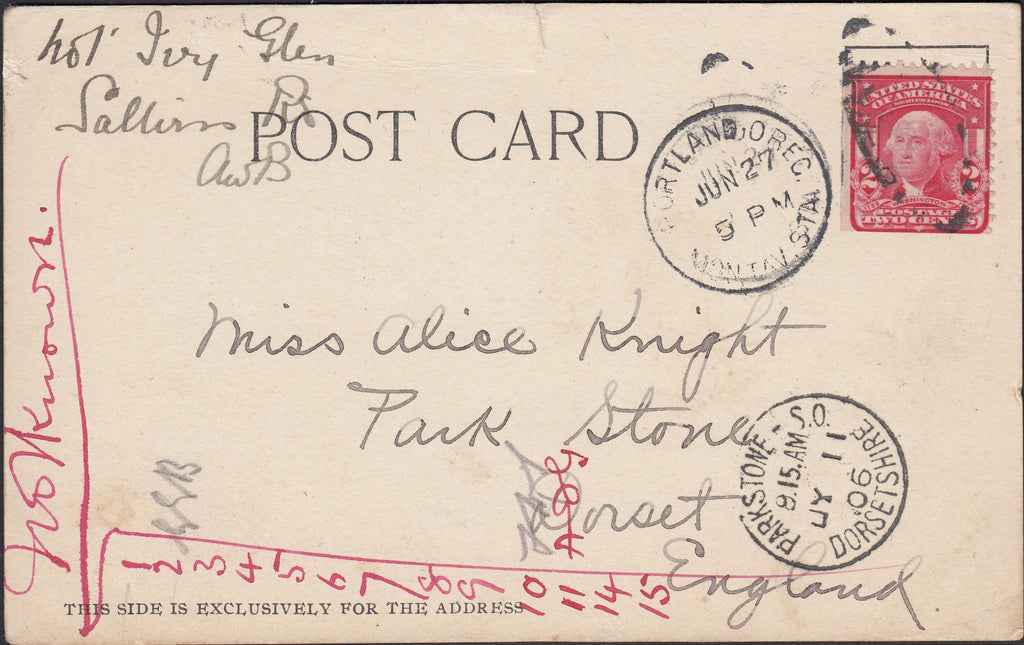 not Ivy Glen
Salterns Rd
AWB
POST CARD
PORTLAND, OREG.
JUN 27
5 PM
MONTAV. STA.
UNITED STATES
OF AMERICA
SERIES 1902
2 2
WASHINGTON
POSTAGE
TWO CENTS
Miss Alice Knight
Park Stone
Dorset
England.
PARKSTONE - S.O.
9.15.AM
JY 11
06
DORSETSHIRE
Not Known.
1 2 3 4 5 6 7 8 9 10 11 14 15
THIS SIDE IS EXCLUSIVELY FOR THE ADDRESS